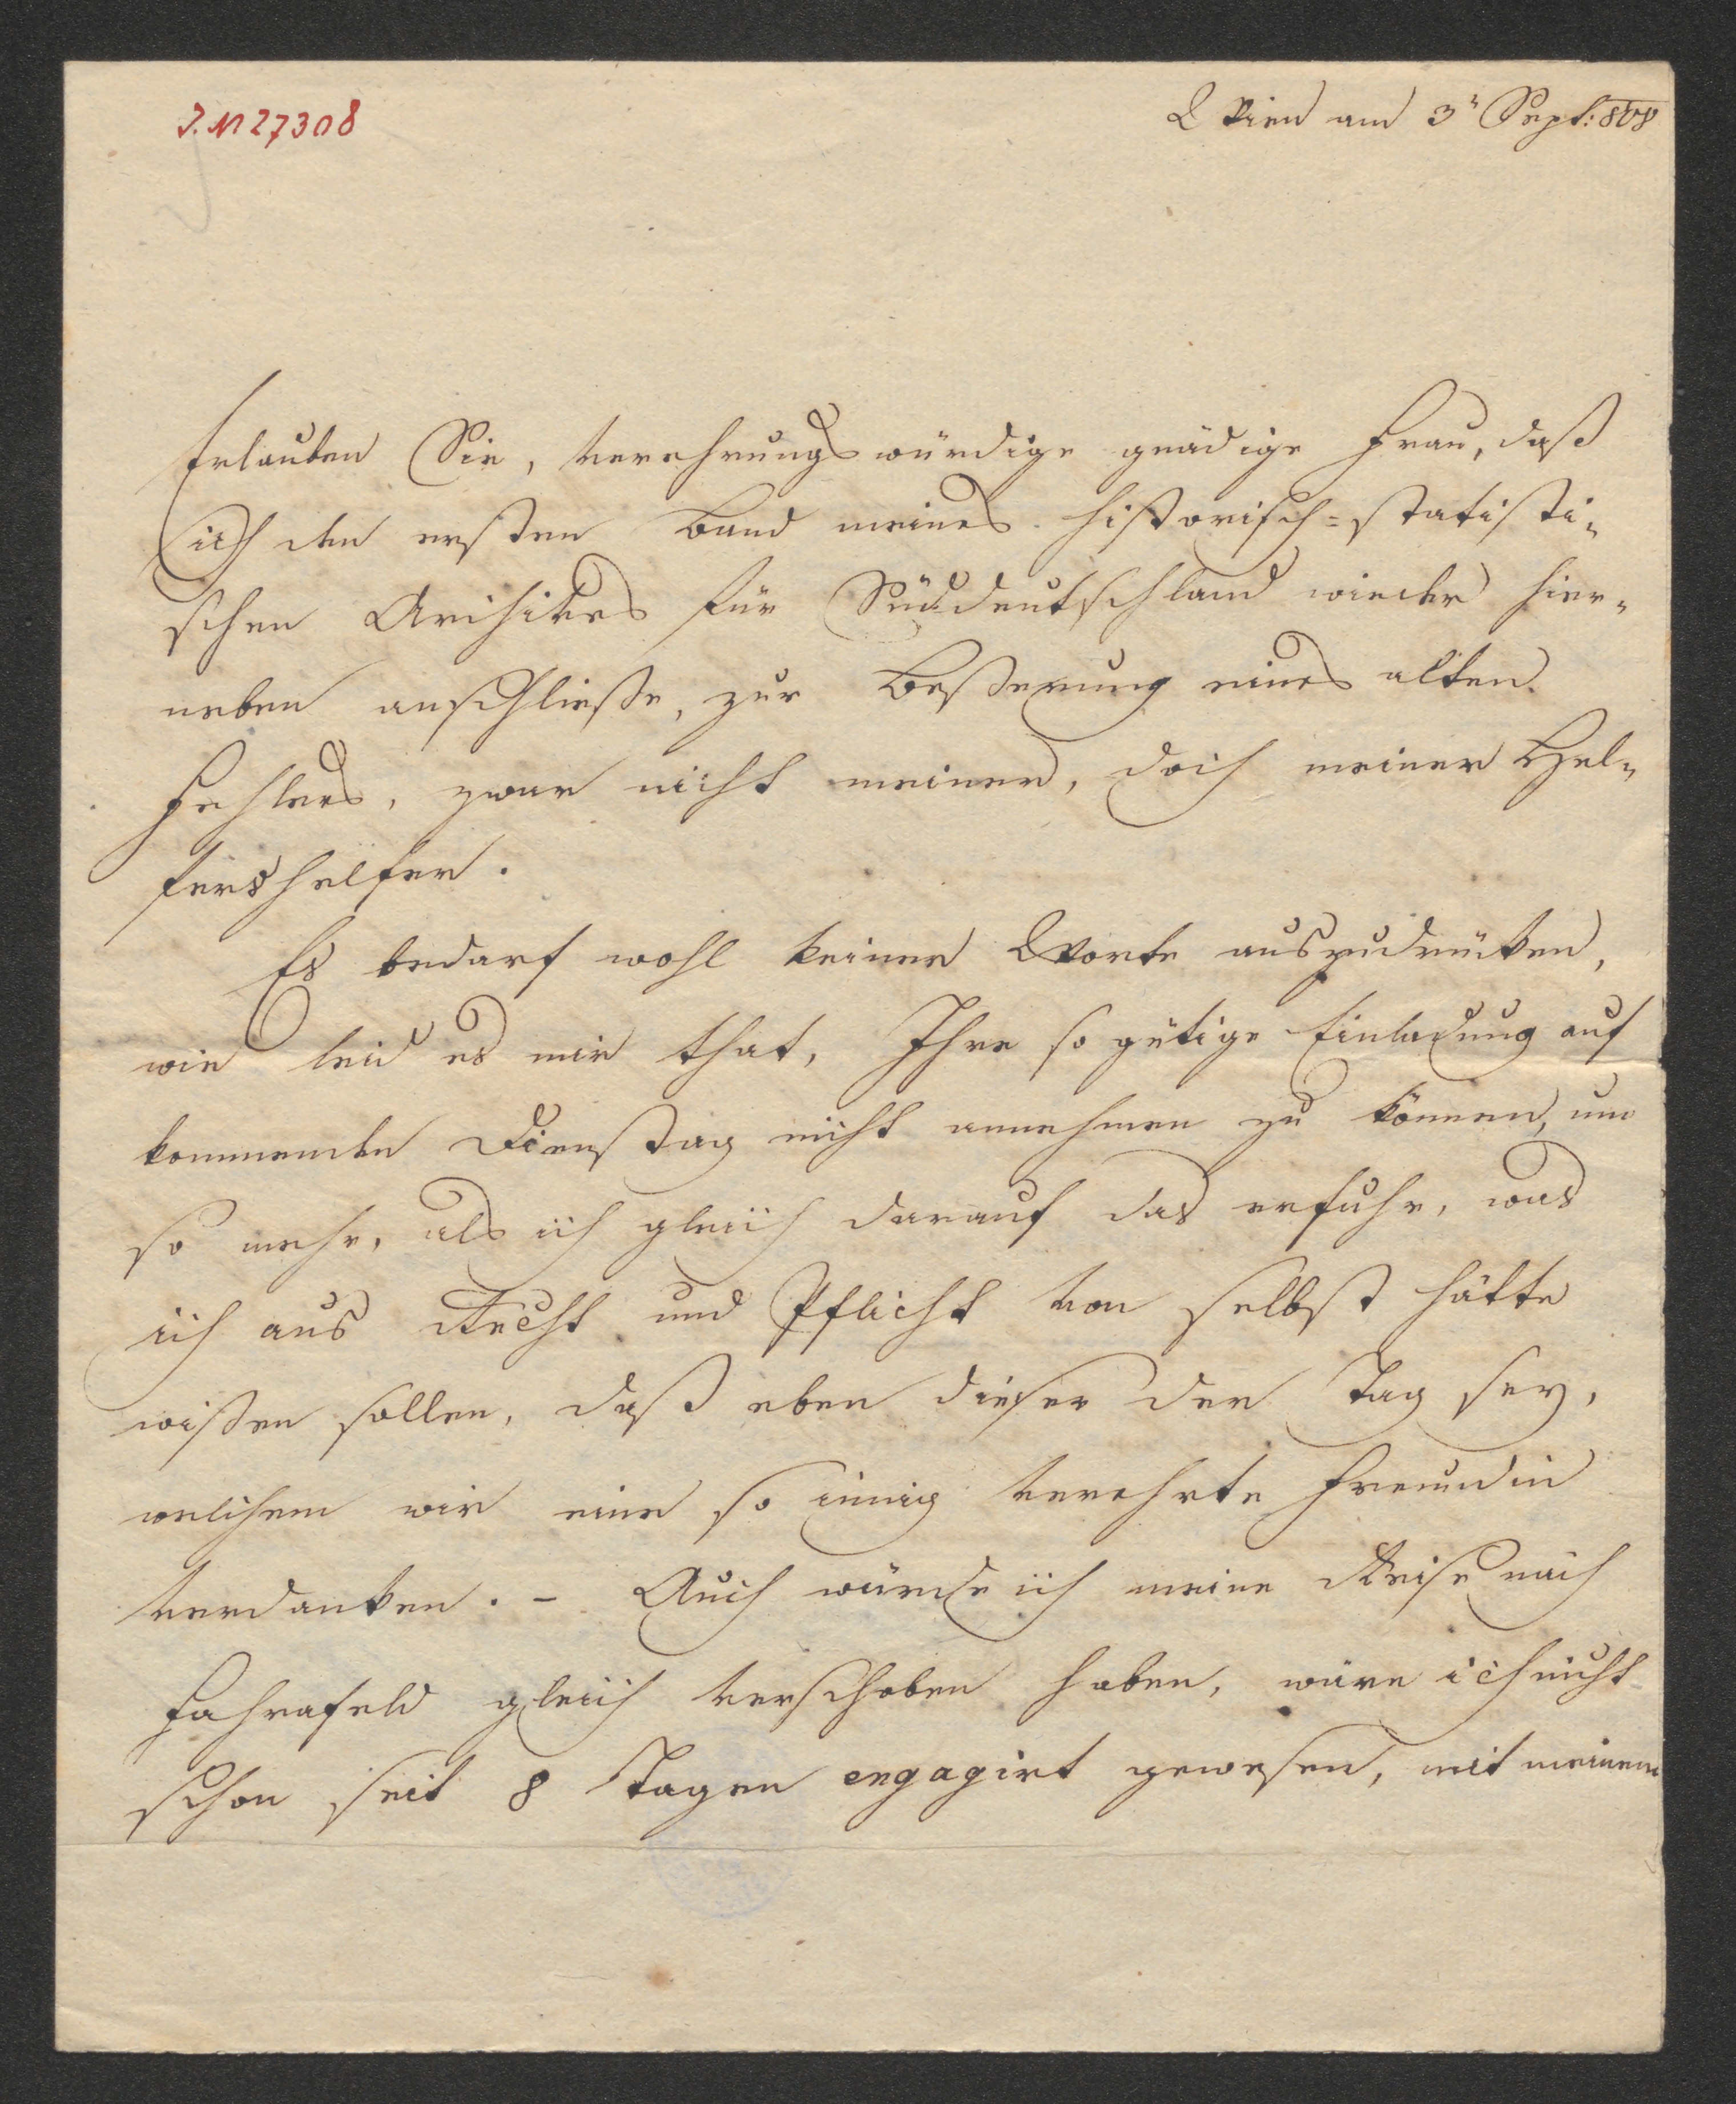 J. N 27308
Wien am 3n Sept: 808
Erlauben Sie, verehrungswürdige gnädige Frau, daß
ich den ersten Band meines historisch=statisti=
schen Archives für Süddeutschland wieder hier=
neben anschließe, zur Beßerung eines alten
Fehlers, zwar nicht meiner, doch meiner Hel=
fershelfer.
Es bedarf wohl keiner Worte auszudrüken,
wie leid es mir that, Ihre so gütige Einladung auf
kommenden Dienstag nicht annehmen zu können, um
so mehr, als ich gleich darauf das erfuhr, was
ich aus Recht und Pflicht von selbst hätte
wißen sollen, daß eben dieser der Tag sey,
welchem wir eine so innig verehrte Freundin
verdanken. – Auch würde ich meine Reise nach
Fahrafeld gleich verschoben haben, wäre ich nicht
schon seit 8 Tagen engagirt gewesen, mit meinem